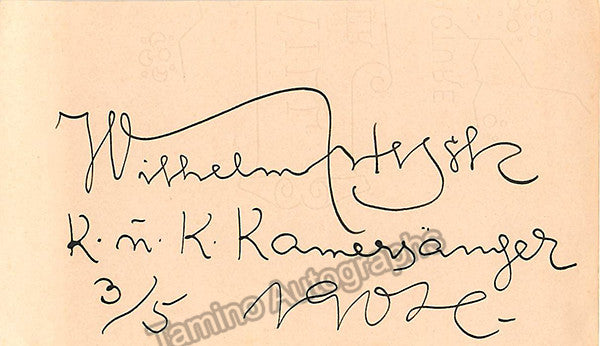 Wilhelm Hesch
K. ū. K. Kam̄ersänger
3/5
Tamino Autographs